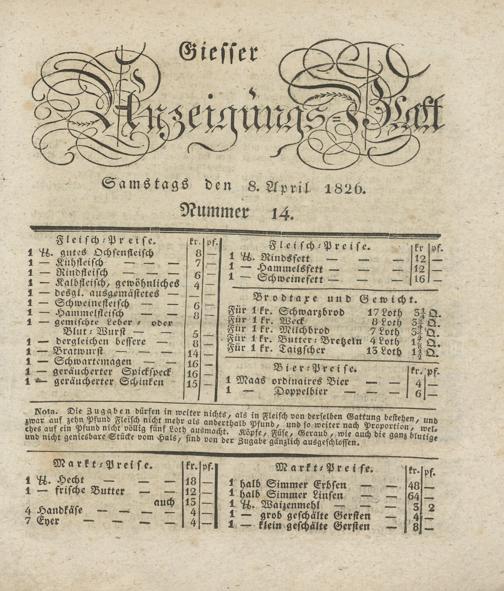 Giesser
Anzeigungs-Blatt
Samstags den 8. April 1826.
Nummer 14.
Fleisch-Preise. kr. pf.
1 ℔. gutes Ochsenfleisch 8 —
1 — Kuhfleisch — — 7 —
1 — Rindfleisch — — 6 —
1 — Kalbfleisch, gewöhnliches 4 —
1 — desgl. ausgemästetes —
1 — Schweinefleisch — — 6 —
1 — Hammelfleisch — — 8 —
1 — gemischte Leber- oder
Blut-Wurst — — 5 —
1 — dergleichen bessere — 8 —
1 — Bratwurst — — 14 —
1 — Schwartemagen — — 16 —
1 — geräucherter Spickspeck 16 —
1 — geräucherter Schinken 15 —
Fleisch-Preise. kr pf.
1 ℔. Rindsfett — — 12 —
1 — Hammelsfett — — 12 —
1 — Schweinefett — — 16 —
Brodtaxe und Gewicht.
Für 1 kr. Schwarzbrod 17 Loth Q.
Für 1 kr. Weck 8 Loth Q.
Für 1 kr. Milchbrod 7 Loth Q.
Für 1 kr. Butter-Bretzeln 4 Loth Q.
Für 1 kr. Taigscher 13 Loth Q.
Bier-Preise. kr. pf.
1 Maas ordinaires Bier — — 4 —
1 — Doppelbier — — 6 —
Nota. Die Zugaben dürfen in weiter nichts, als in Fleisch von derselben Gattung bestehen, und
zwar auf zehn Pfund Fleisch nicht mehr als anderthalb Pfund, und so weiter nach Proportion, wel-
ches auf ein Pfund nicht völlig fünf Loth ausmacht. Köpfe, Füse, Geraud, wie auch die ganz blutige
und nicht geniesbare Stücke vom Hals, sind von der Zugabe gänzlich ausgeschlossen.
Markt-Preise. kr. pf.
1 ℔. Hecht — — — 18 —
1 — frische Butter — — 12 —
auch 13 —
4 Handkäse — — — 4 —
7 Eyer — — — 4 —
Markt-Preise. kr. pf.
1 halb Simmer Erbsen — 48 —
1 halb Simmer Linsen — 64 —
1 ℔. Waizenmehl — — 3 2
1 — grob geschälte Gersten — 4 —
1 — klein geschälte Gersten — 8 —